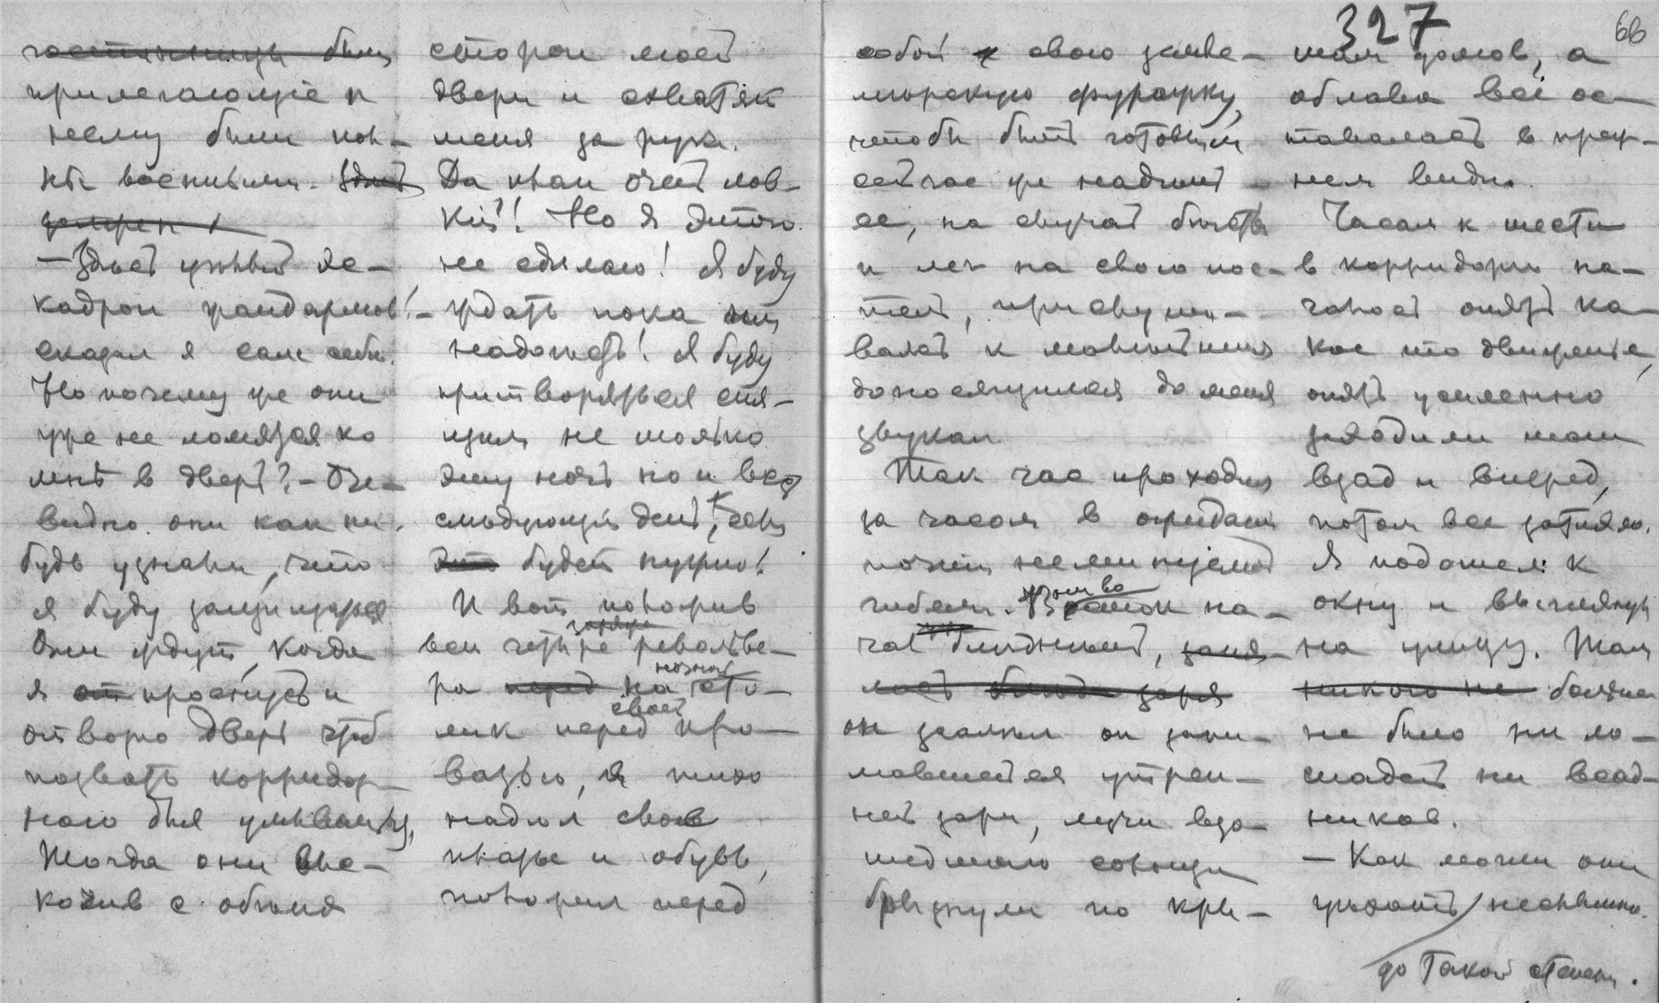 327
66
гостинницы были
прилегающіе к
нему были пол-
ны военными. Здѣсь
— Здѣсь цѣлый эс-
кадрон жандармов! -
сказал я сам себѣ.
Но почему же они
уже не ломятся ко
мнѣ в дверь? - Оче-
видно они как ни-
будь узнали, что
я буду защищаться
Они ждут, когда
я проснусь и
отворю дверь чтоб
позвать корридор-
наго для умыванья,
Тогда они вы-
скочив с обѣих
сторон моей
двери и схватят
меня за руки.
Да план очень лов-
кій! Но я этого
не сдѣлаю! Я буду
ждать пока им
надоѣст! Я буду
притворяться спя-
щим не только
эту ночь но и весь
слѣдующій день, если
это будет нужно!
И вот положив
все четыре револьве-
ра перед на ночной сто-
лик перед своей кро-
ватью, я тихо
надѣл свое
платье и обувь,
положил перед
собой и свою
фуражку,
чтобы быть готовым
сейчас же надѣть
ее, на случай бѣгства
и лег на свою пос-
тель, прислуши-
ваясь к малѣйшим
доносящимся до меня
звукам.
Так час проходил
за часом в ожидании
почти неминуемой
гибели. Восток на-
чал блѣднѣть, заня-
лась заря
он заалѣл от зани-
мавшейся утрен-
ней зари, лучи взо-
шедшаго солнца
брызнули по кры-
шам домов, а
облава все ос-
тавалась в преж-
нем видѣ.
Часам к шести
в корридорѣ на-
чалось опять ка-
кое то движенье,
опять усиленно
заходили там
взад и вперед,
потом все затихло.
Я подошел к
окну и выглянул
на улицу. Там
никого не больше
не было ни ло-
шадей ни всад-
ников.
— Как могли они
уѣхать неслышно
до такой степени.